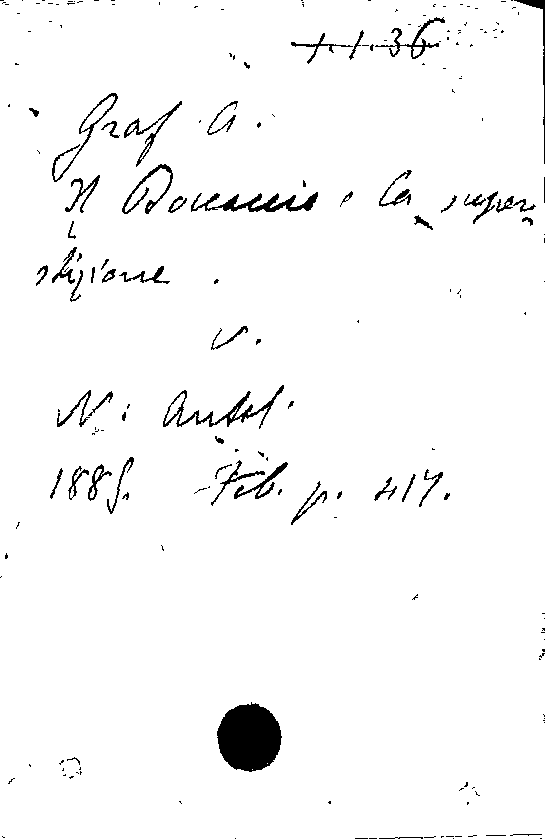 1.1.36
Graf A.
Il Boccaccio e la super
stizione.
v.
N. Antol.
1885. Feb. p. 417.